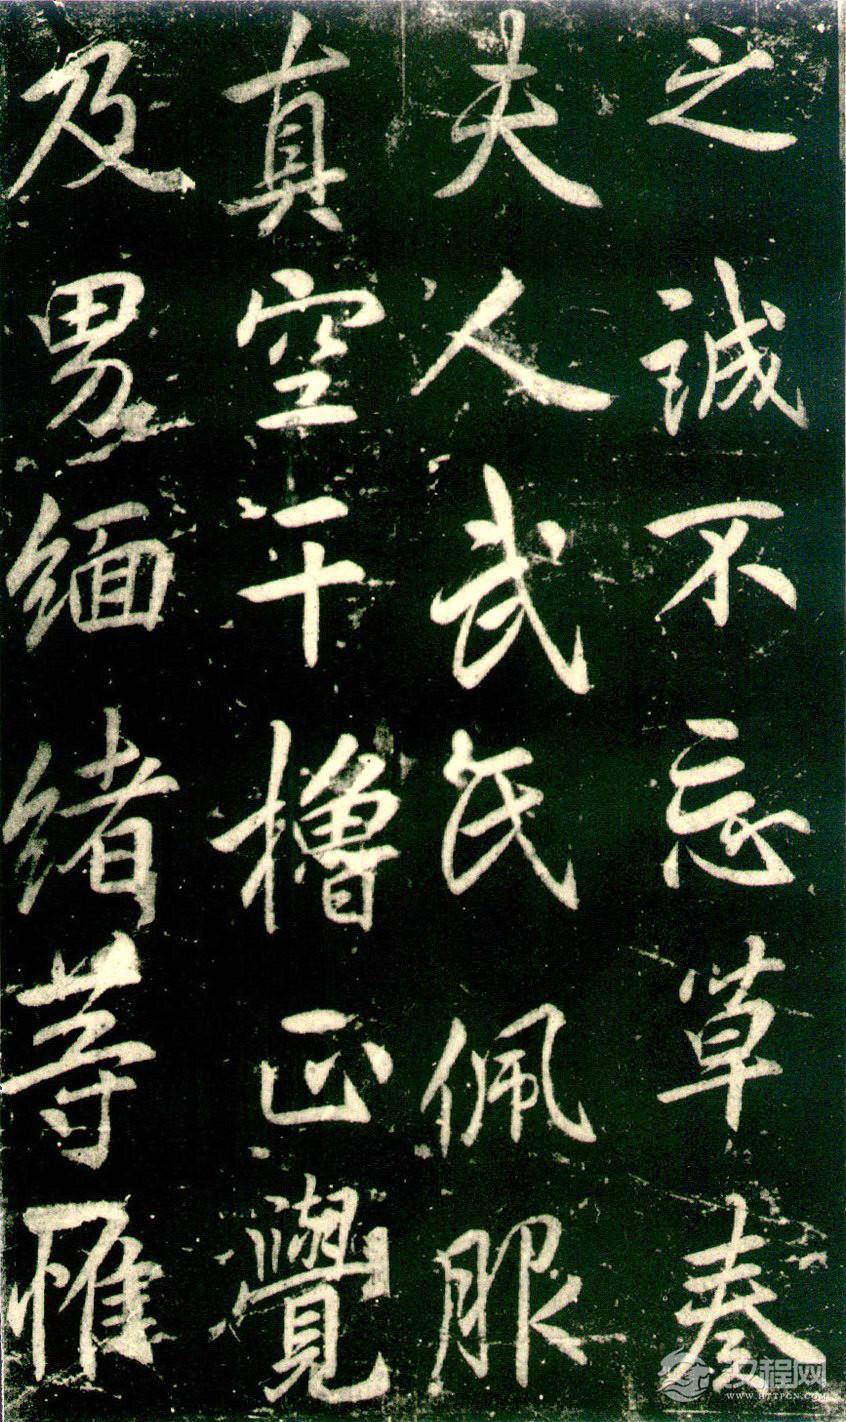 之誠不忘草奏
夫人武氏佩服
真空干櫓正覺
及男緬緒等
汉程网
WWW.HTTPCN.COM